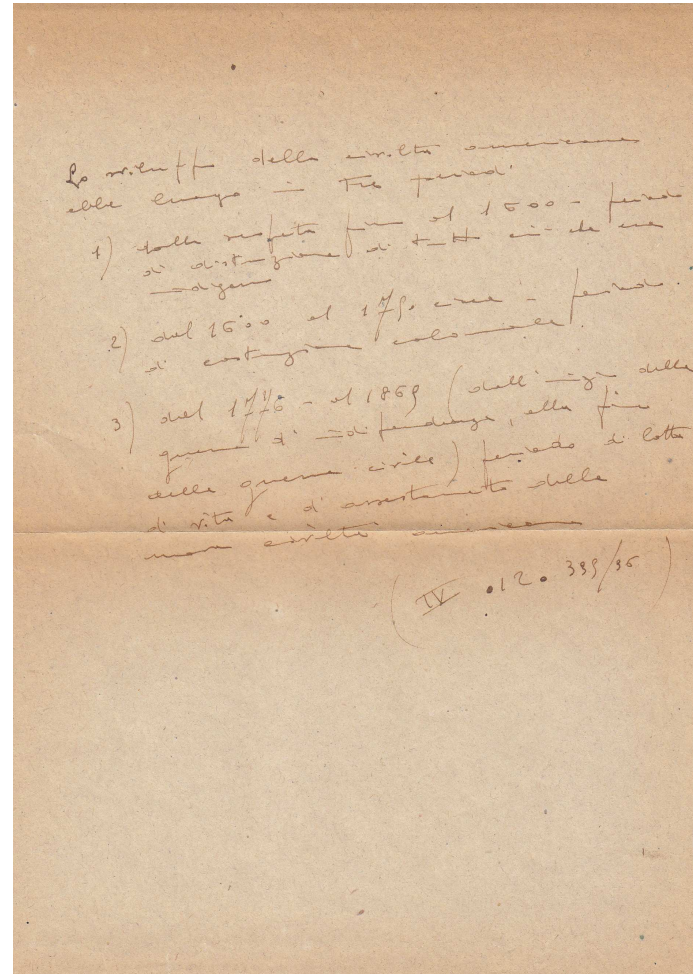 Lo sviluppo della civiltà americana
ebbe luogo in tre periodi
1) dalla scoperta fino al 1600 - periodo
di distruzione di tutto ciò che era
indigeno
2) dal 1600 al circa - periodo
di costruzione coloniale.
3) dal 1776 - al 1869 (dall'inizio della
guerra d'indipendenza, alla fine
della guerra civile) periodo di lotta
di vita e d'assestamento della
nuova civiltà americana
(IV .12. 395/96)